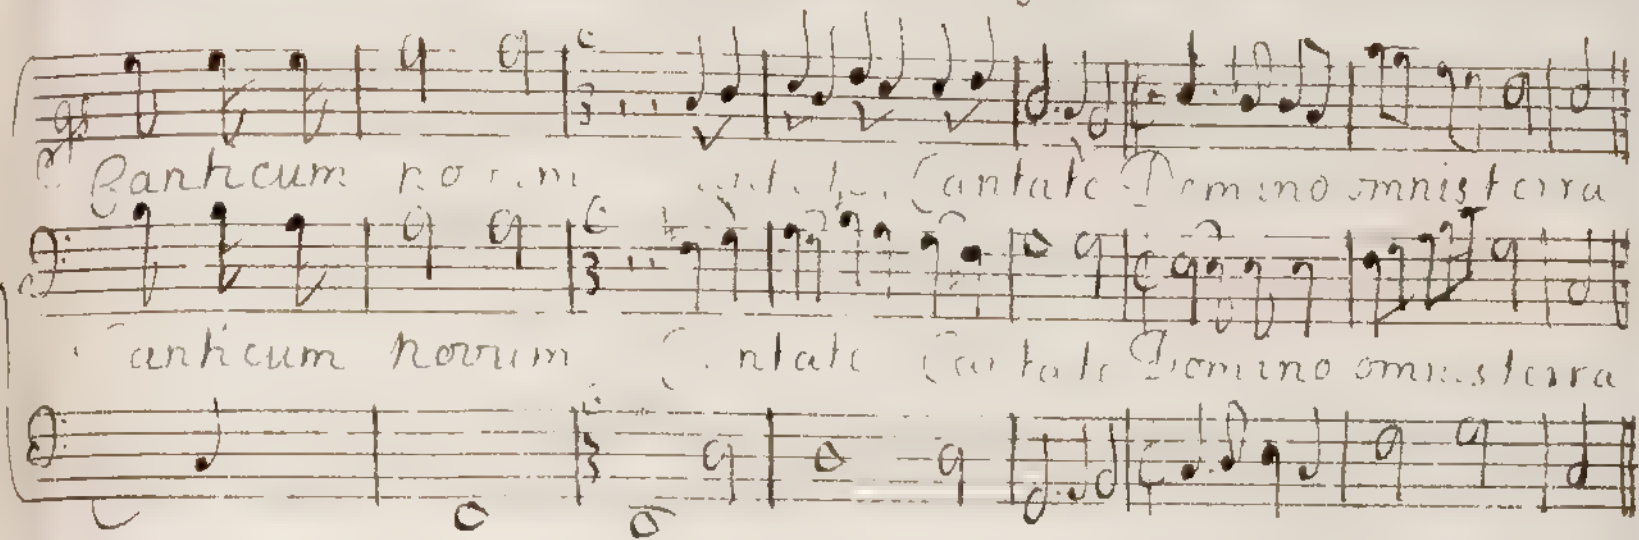 Canticum novum Cantate Domino omnis terra
Canticum novum Cantate Cantate Domino omnis terra